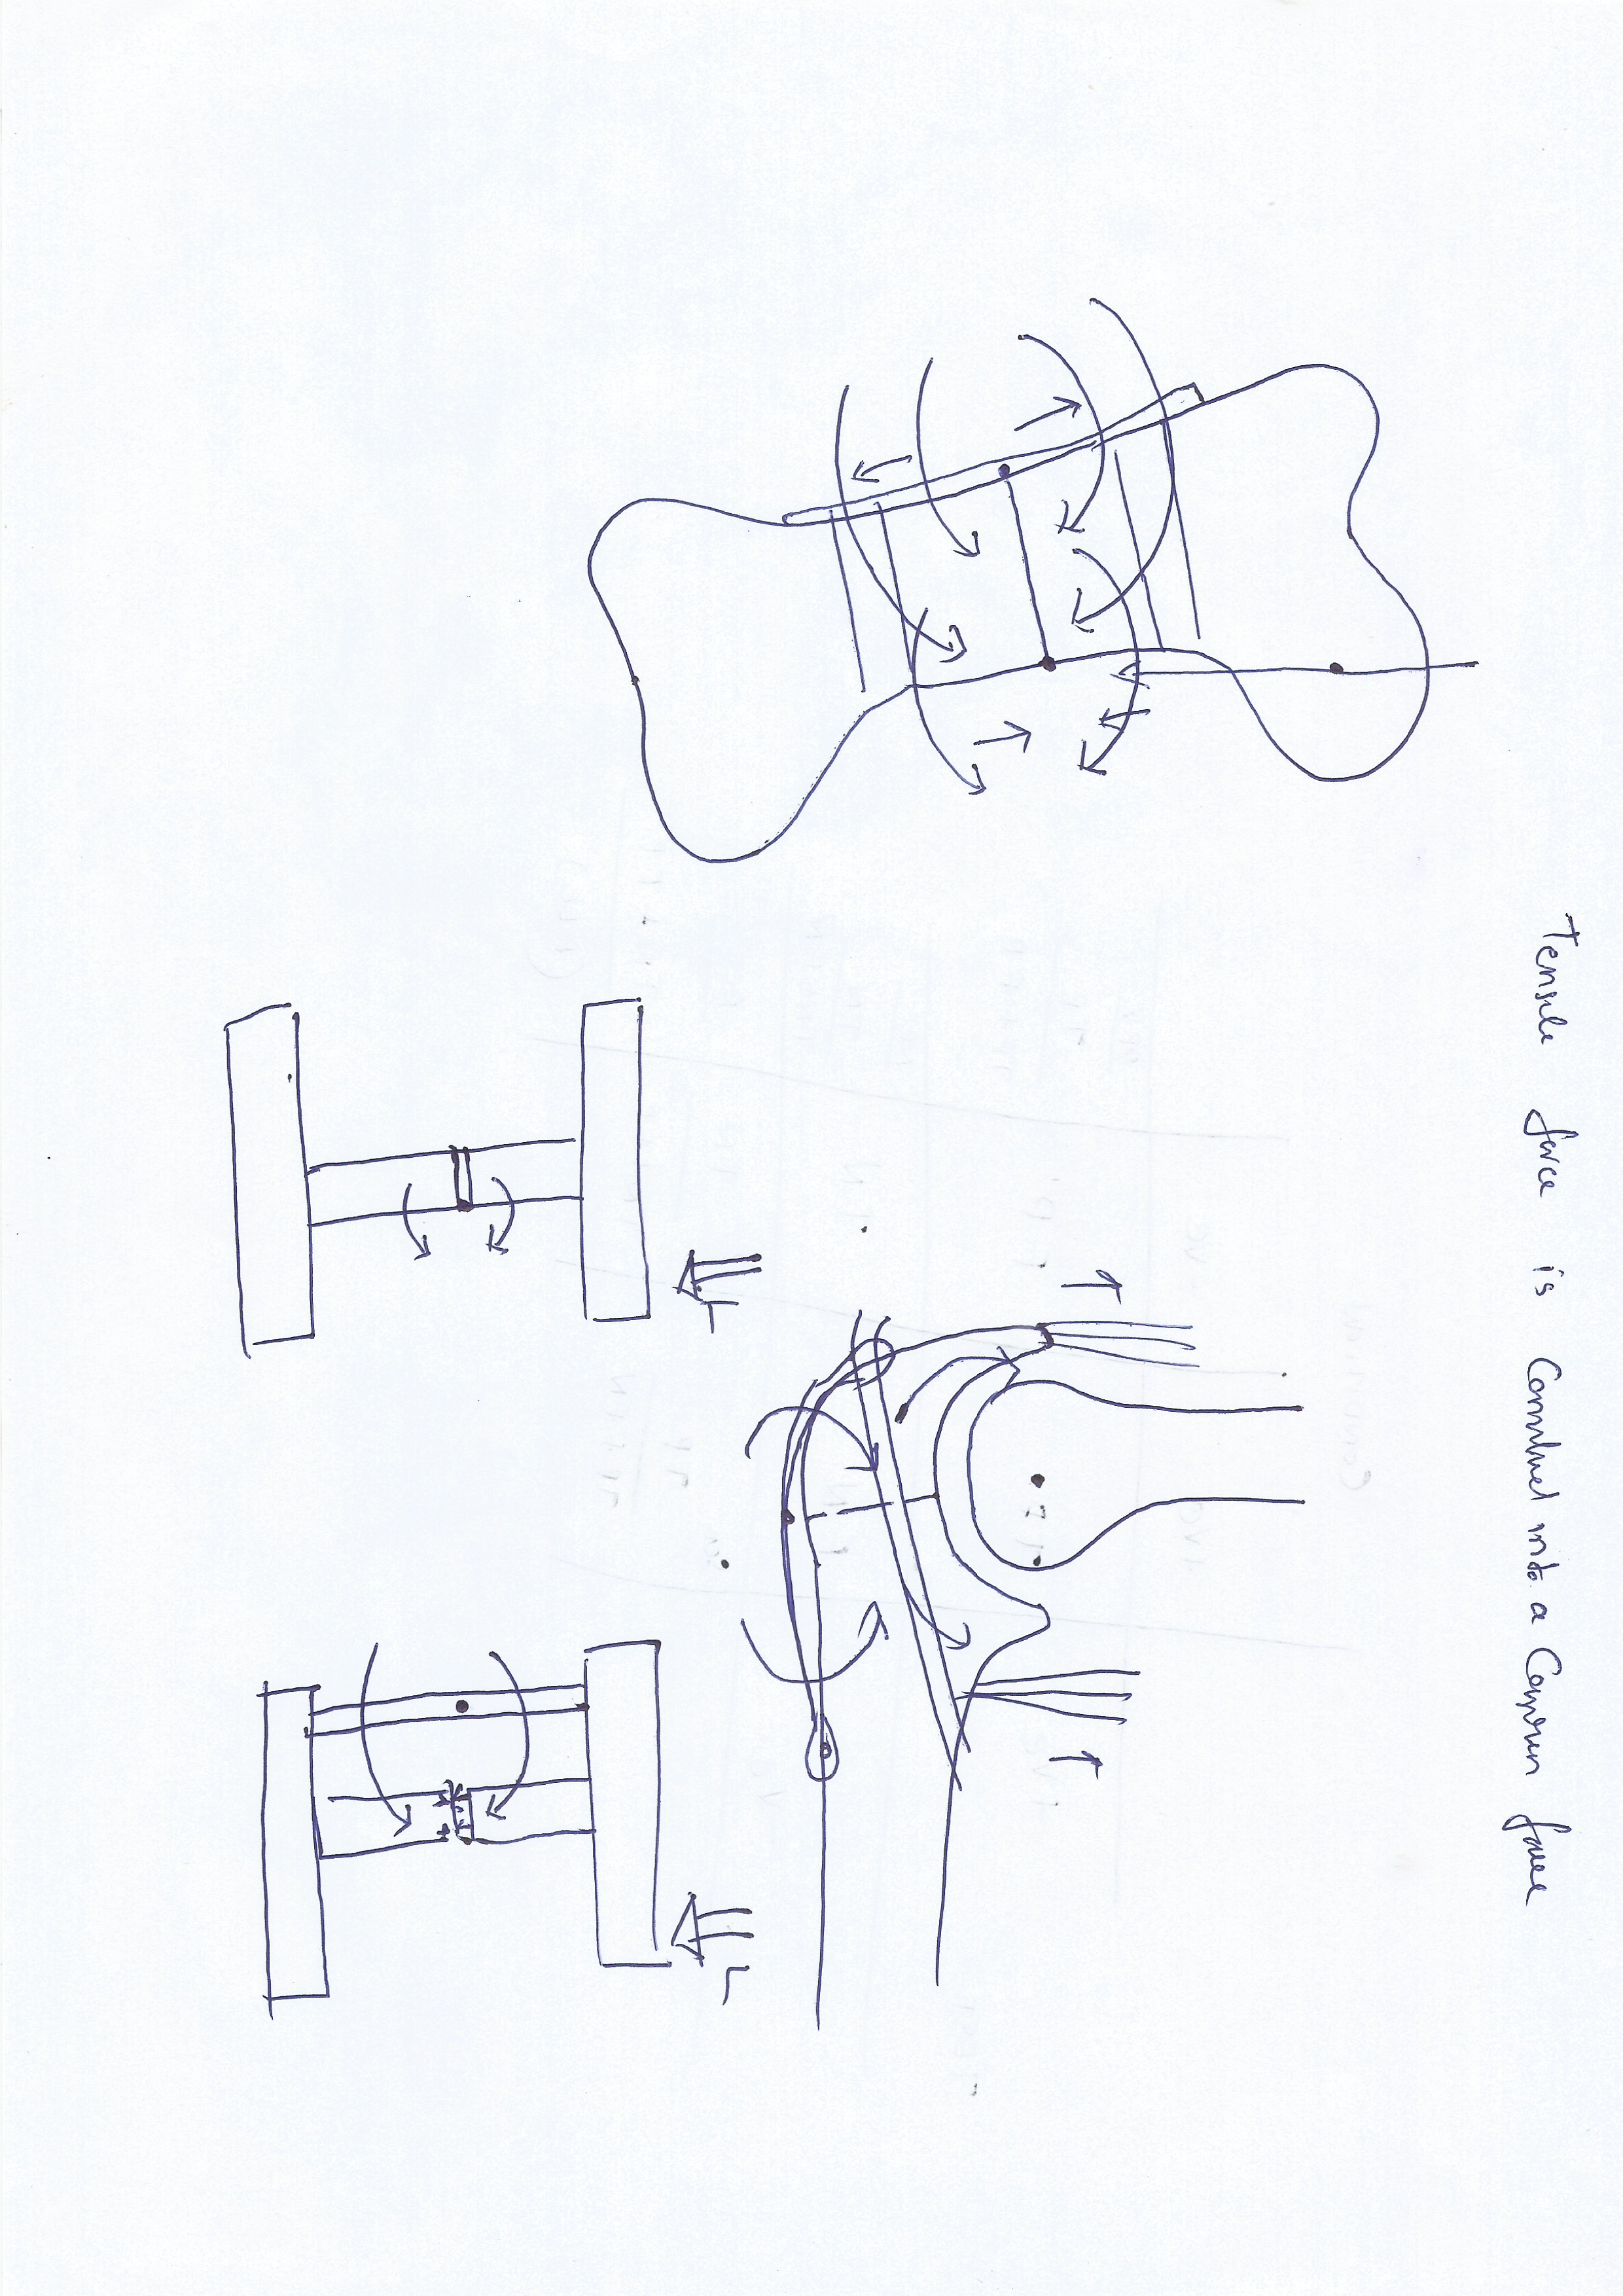 Tensile force is Converted into a Compressn force
L
L